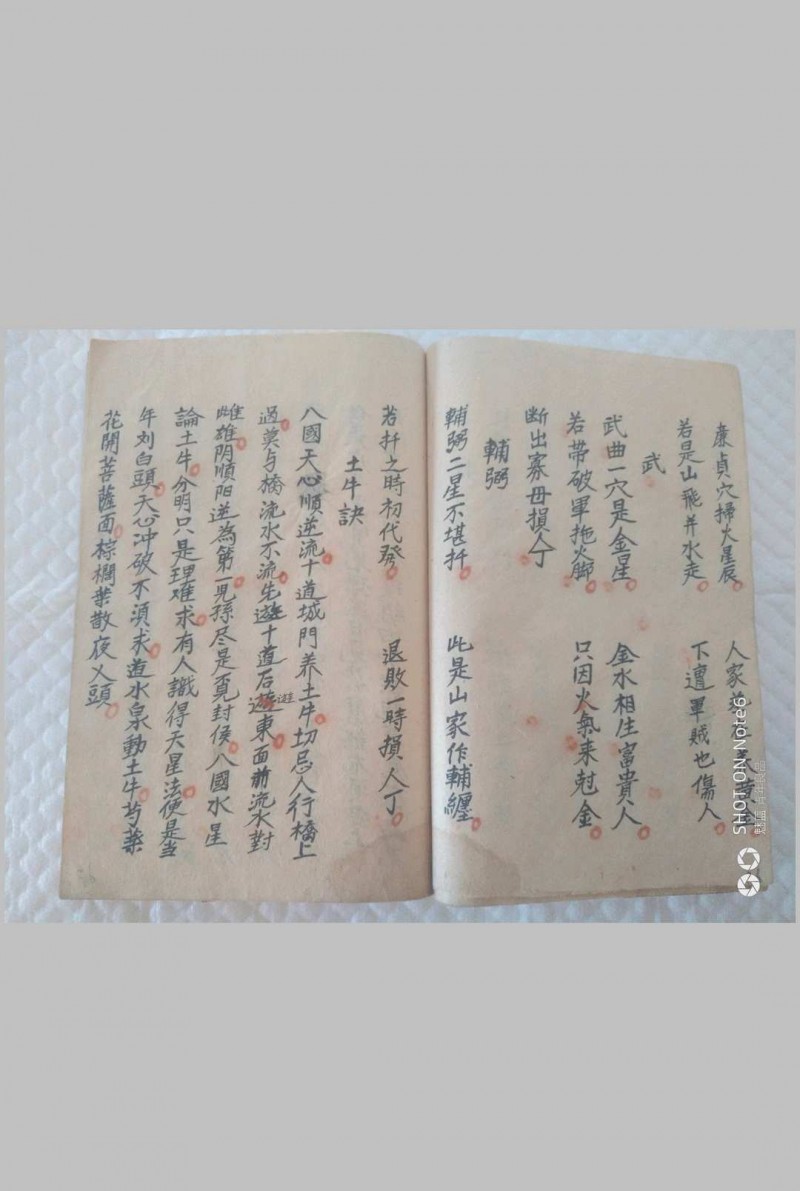 廉貞穴掃火星辰 人家
若是山飛并水走 下遭軍賊也傷人
武
武曲一穴是金星 金水相生富貴人
若帶破軍拖火脚 只因火氣来尅金
断出寡母損人丁
輔弼
輔弼二星不堪扦 此是山家作輔纏
若扦之時初代發 退敗一時損人丁
土牛訣
八國天心順逆流十道城門养土牛切忌人行橋上
過莫与橋流水不流先遊十道后遊東面前流水對
雌雄阴順阳逆為第一見孫尽是覔封侯八國水星
論土牛分明只是理难求有人識得天星法便是当
年刘白頭天心冲破不湏求道水泉動土牛芍藥
花開菩薩面棕櫚葉散夜乂頭
遊
SHOT ON Note6
魅蓝 青年良品